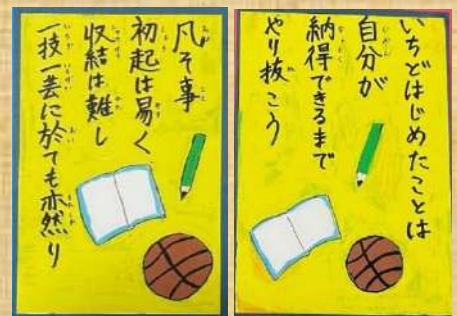 凡そ事
初起は易く
収結は難し
一技一芸に於ても亦然り
いちどはじめたことは
自分が
納得できるまで
やり抜こう